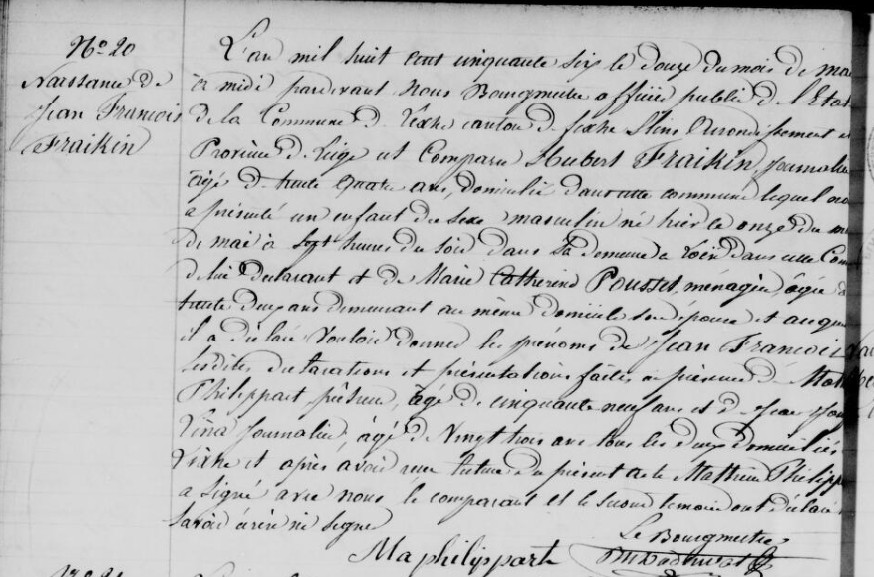 No 20
Naissance de
Jean Francois
Fraikin
L'an mil huit cent cinquante six le douze du mois de mai
à midi pardevant Nous Bourgmestre officier public de l'Etat
de la Commune de Vixhe canton de fexhe Slins Arrondissement et
Province de Liége est Comparu Hubert Fraikin, Journalier
âgé de trente quatre ans, domicilié dans cette commune lequel nous
a présenté un enfant du sexe masculin né hier le onze du mois
de mai à Sept heures du soir dans sa demeure à dans cette Com
de lui déclarant et de Marie Catherine Pousset, ménagère, âgée de
trente deux ans demeurant au même domicile son épouse et auquel
il a déclaré vouloir donner les prénoms de Jean Francois
Lesdites declarations et présentations faites en présence de Math
Philippart, âgé de cinquante neuf ans et de Jean
Journalier, âgé de Vingt trois ans tous les deux domiciliés
Vixhe et après avoir recu lecture du présent acte Mathieu Philippart
a signé avec nous le comparant et le second temoin ont déclaré
savoir ne signer
Le Bourgmestre
Ma philippart